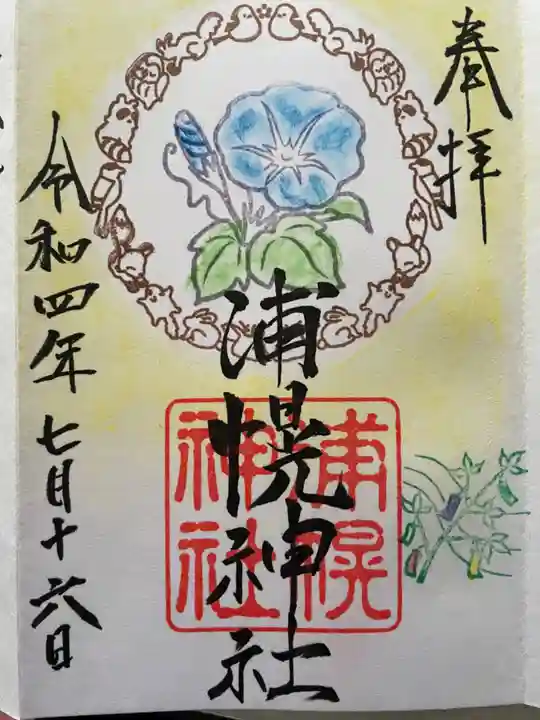 奉拝
浦幌神社
浦幌
神社
令和四年七月十六日